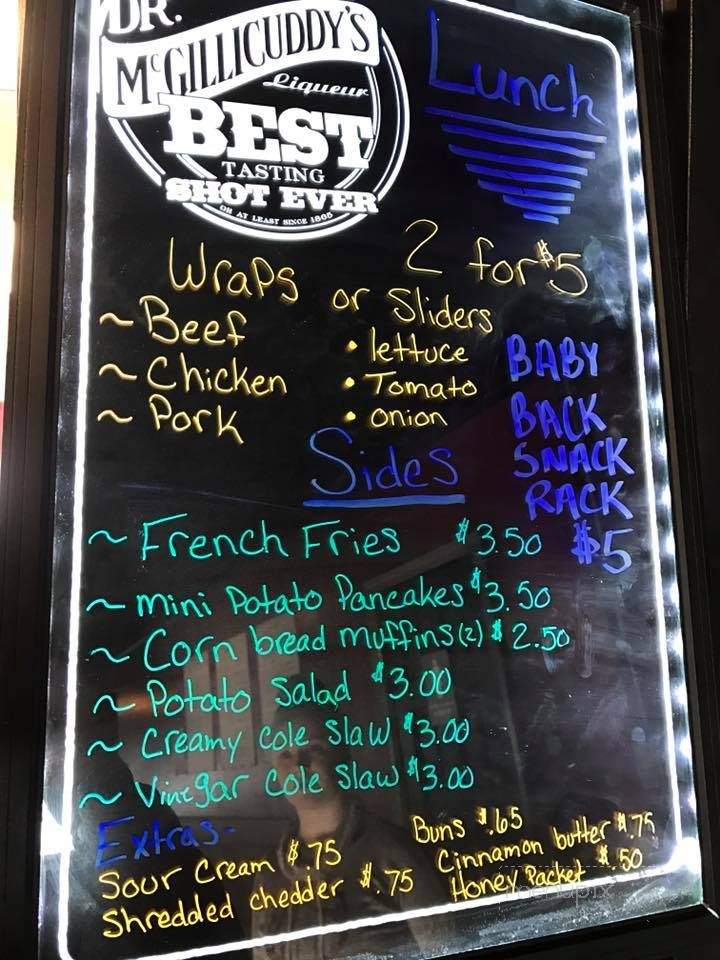 DR.
McGILLICUDDY'S
Liqueur
BEST
TASTING
SHOT EVER
OR AT LEAST SINCE 1865
Lunch
Wraps or Sliders 2 for $5
~ Beef
~ Chicken
~ Pork
• lettuce
• Tomato
• onion
BABY
BACK
SNACK
RACK
$5
Sides
~ French Fries $3.50
~ mini Potato Pancakes $3.50
~ Corn bread muffins (2) $2.50
~ Potato Salad $3.00
~ Creamy Cole Slaw $3.00
~ Vinegar Cole Slaw $3.00
Extras-
Sour Cream $.75
Shredded chedder $.75
Buns $.65
Cinnamon butter $.75
Honey Packet $.50